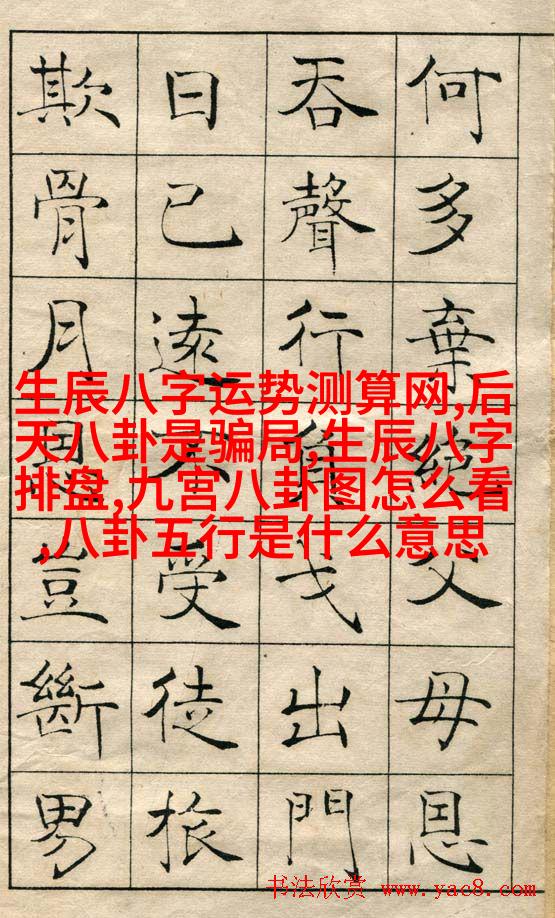 何多棄絕父母恩
吞聲行負戈出門
日已遠不受徒旅
欺骨月恩豈斷男
生辰八字运势测算网,后
天八卦是骗局,生辰八字
排盘,九宫八卦图怎么看
,八卦五行是什么意思
书法欣赏 www.yac8.com